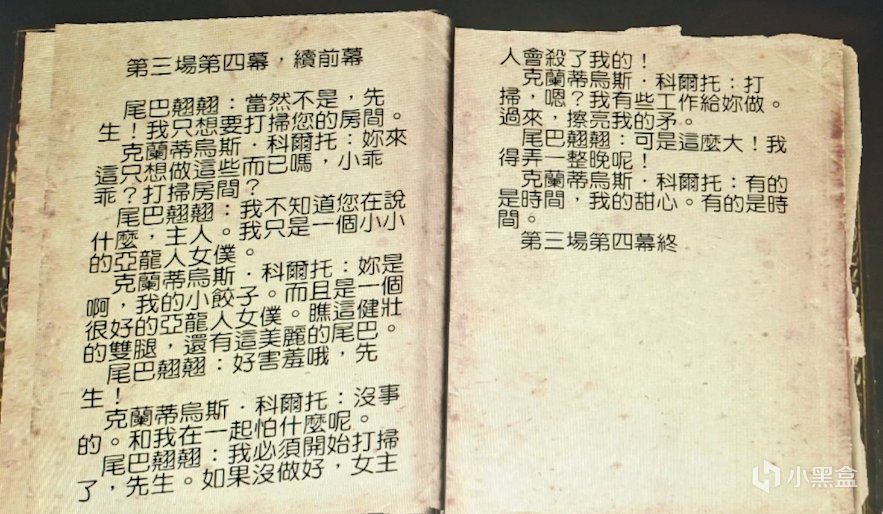 第三場第四幕，續前幕
尾巴翹翹：當然不是，先
生！我只想要打掃您的房間。
克蘭蒂烏斯·科爾托：妳來
這只想做這些而已嗎，小乖
乖？打掃房間？
尾巴翹翹：我不知道您在說
什麼，主人。我只是一個小小
的亞龍人女僕。
克蘭蒂烏斯·科爾托：妳是
啊，我的小餃子。而且是一個
很好的亞龍人女僕。瞧這健壯
的雙腿，還有這美麗的尾巴。
尾巴翹翹：好害羞哦，先
生！
克蘭蒂烏斯·科爾托：沒事
的。和我在一起怕什麼呢。
尾巴翹翹：我必須開始打掃
了，先生。如果沒做好，女主
人會殺了我的！
克蘭蒂烏斯·科爾托：打
掃，嗯？我有些工作給妳做。
過來，擦亮我的矛。
尾巴翹翹：可是這麼大！我
得弄一整晚呢！
克蘭蒂烏斯·科爾托：有的
是時間，我的甜心。有的是時
間。
第三場第四幕終
小黑盒